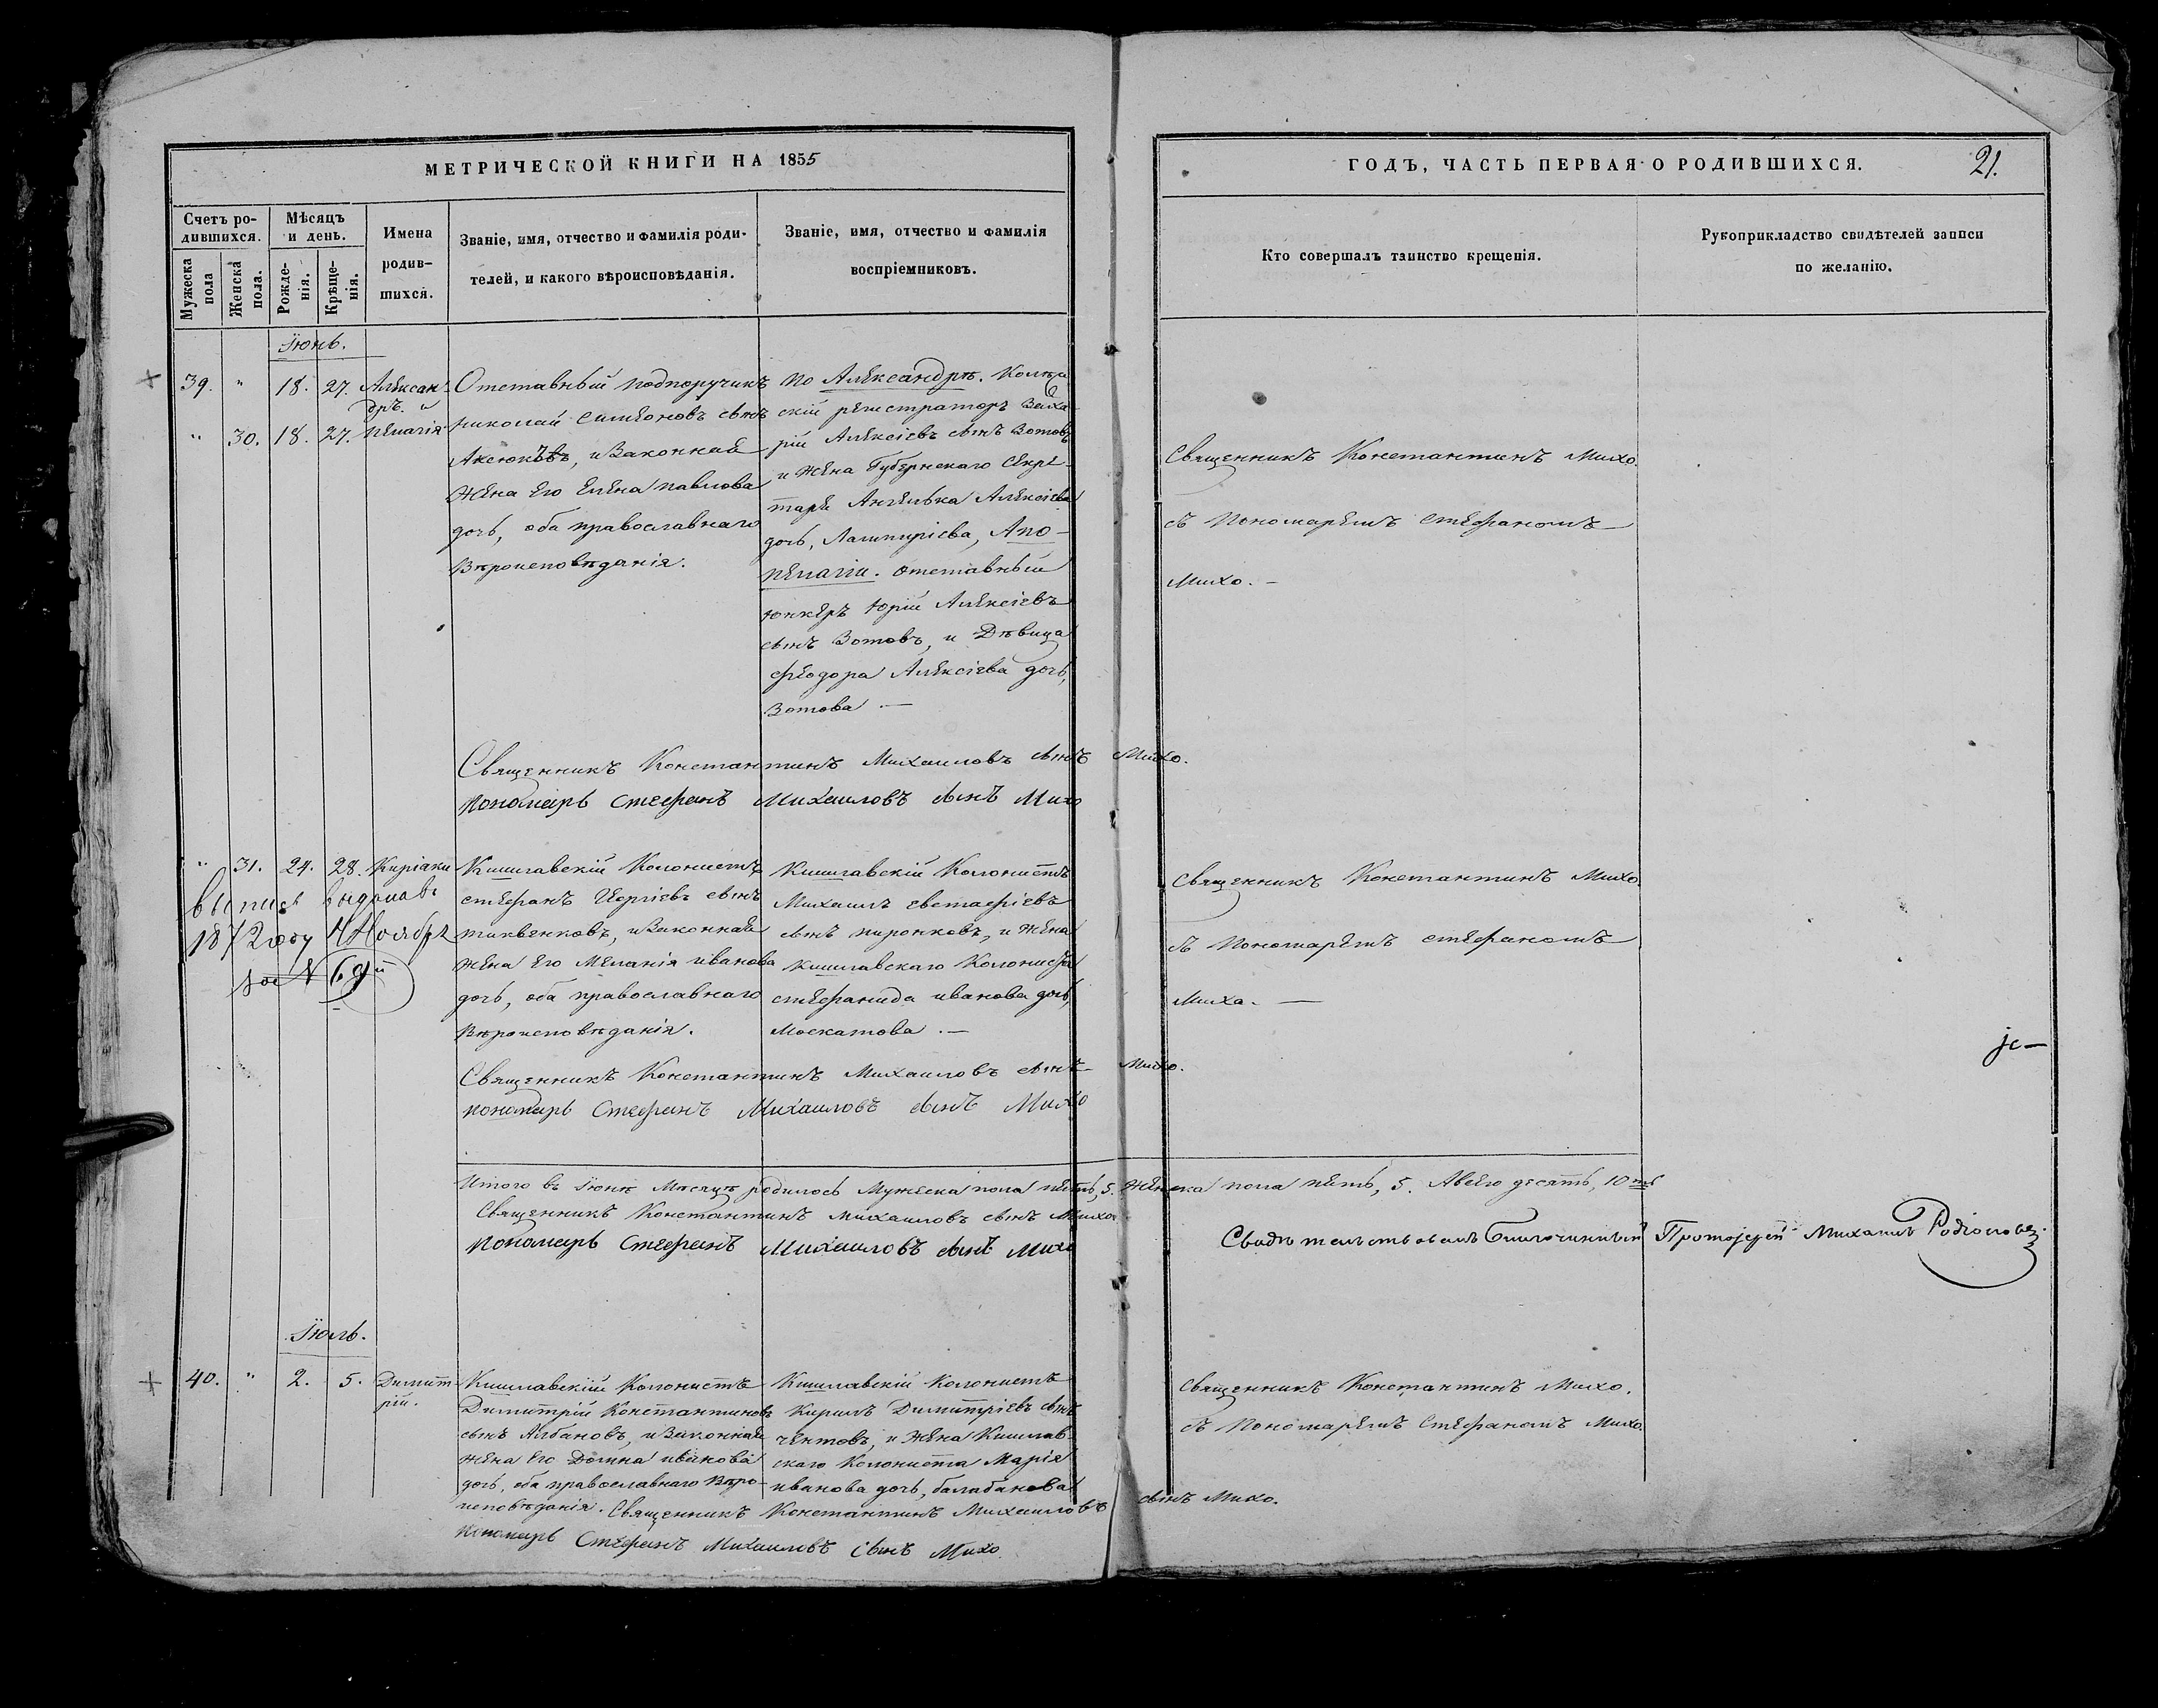 МЕТРИЧЕСКОЙ КНИГИ НА 1855
ГОДЪ, ЧАСТЬ ПЕРВАЯ О РОДИВШИХСЯ.
21.
Счетъ ро-
дившихся.
Мужеска пола
Женска пола.
Мѣсяцъ
и день.
Рожде-
нія.
Крѣще-
нія.
Имена
родив-
шихся.
Званіе, имя, отчество и фамилія роди-
телей, и какого вѣроисповѣданія.
Званіе, имя, отчество и фамилія
воспріемниковъ.
Кто совершалъ таинство крещенія.
Рукоприкладство свидѣтелей записи
по желанію.
Іюнь.
39. " 18. 27. Алексан-
дръ. и
" 30. 18. 27. Пелагія
Отставный подпоручикъ
Николай Симеоновъ сынъ
и Законная
Жена Его Елена Павлова
дочь, оба православнаго
Вѣроисповѣданія.
по Александрѣ. Колеж
скій регистраторъ
Алексіевъ сынъ Зотовъ
и Жена Губернскаго Секре-
таря Ангелика Алексіева
дочь, А по
Пелагіи. Отставный
юнкеръ Юрій Алексіевъ
сынъ Зотовъ, и Дѣвица
Феодора Алексіева дочь,
Зотова. —
Священникъ Константинъ Михо.
съ Пономаремъ Стефаномъ —
Михо. —
Священникъ Константинъ Михаиловъ сынъ Михо.
Пономарь Стефанъ Михаиловъ сынъ Михо
" 31. 24. 28. Киріаки
Выпись выдана въ
1872 году Ноября
за №
Кишлавскій Колонистъ
Стефанъ Георгіевъ сынъ
Тиквенковъ, и Законная
Жена Его Меланія Иванова
дочь, оба православнаго
Вѣроисповѣданія.
Кишлавскій Колонистъ
Михаилъ Евстафіевъ
сынъ Пиронковъ, и Жена
Кишлавскаго Колониста
Стефанида Иванова дочь,
Москатова. —
Священникъ Константинъ Михо.
съ Пономаремъ Стефаномъ
Михо. —
Священникъ Константинъ Михаиловъ сынъ Михо.
Пономарь Стефанъ Михаиловъ сынъ Михо
Итого въ Іюнѣ Мѣсяцѣ родилось Мужеска пола пять, 5. Женска пола пять, 5. А всего десять, 10ть
Священникъ Константинъ Михаиловъ сынъ Михо.
Пономарь Стефанъ Михаиловъ сынъ Михо
Свидѣтельствовалъ Благочинный Протоіерей Михаилъ Родіоновъ.
Іюль.
40. " 2. 5. Димит-
рій.
Кишлавскій Колонистъ
Димитрій Константиновъ
сынъ Албановъ, и Законная
Жена Его Домна Иванова
дочь, оба православнаго Вѣро-
исповѣданія.
Кишлавскій Колонистъ
Кирилъ Димитріевъ сынъ
Чентовъ, и Жена Кишлав-
скаго Колониста Марія
Иванова дочь, Балабанова
Священникъ Константинъ Михо.
съ Пономаремъ Стефаномъ Михо.
Священникъ Константинъ Михаиловъ сынъ Михо.
Пономарь Стефанъ Михаиловъ сынъ Михо.